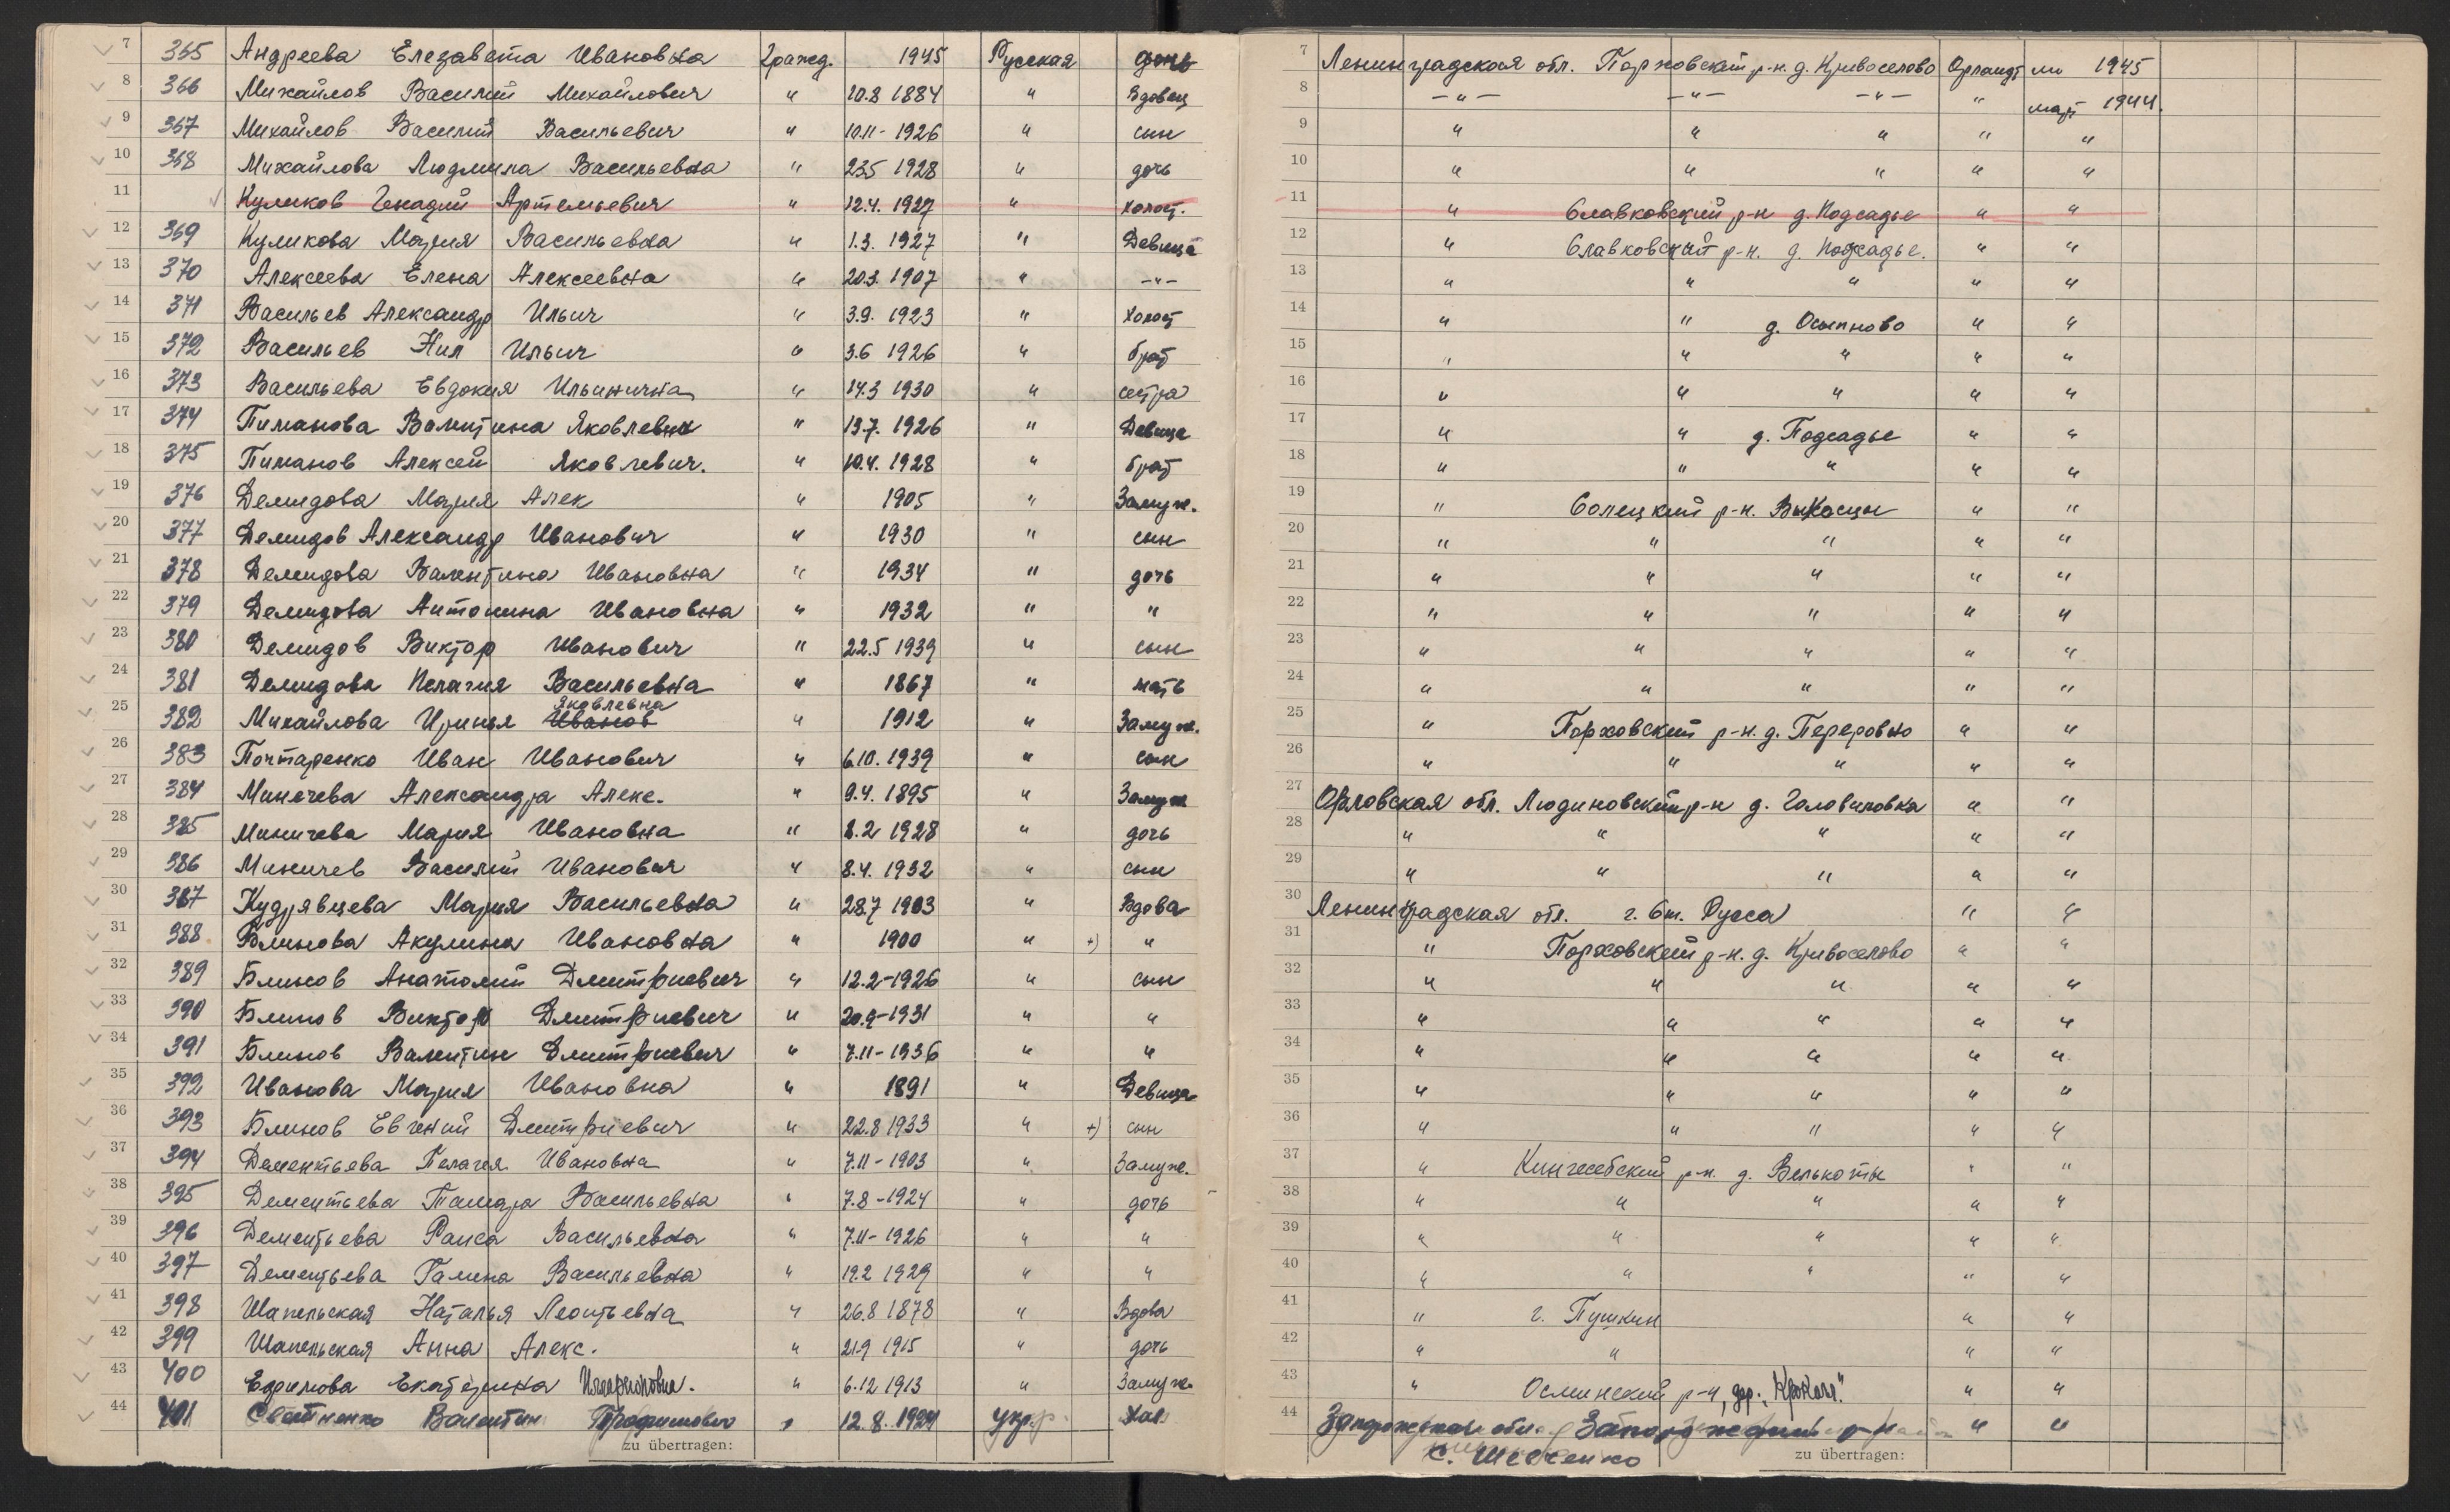 7 365 Андреева Елезавета Ивановна Гражд. 1945 Русская дочь
8 366 Михайлов Василий Михайлович " 10.8 1884 " Вдовец
9 367 Михайлов Василий Васильевич " 10.11-1926 " сын
10 368 Михайлова Людмила Васильевна " 23.5 1928 " дочь
11 Куликов Генадий Артемьевич " 12.4. 1927 " Холост.
12 369 Куликова Мария Васильевна " 1.3. 1927 " Девица
13 370 Алексеева Елена Алексеевна " 20.3. 1907 " -"-
14 371 Васильев Александр Ильич " 3.9. 1923 " Холост
15 372 Васильев Нил Ильич " 3.6 1926 " брат
16 373 Васильева Евдокия Ильинична " 14.3 1930 " сестра
17 374 Пиманова Валентина Яковлевна " 13.7. 1926 " Девица
18 375 Пиманов Алексей Яковлевич. " 10.4. 1928 " брат
19 376 Демидова Мария Алек " 1905 " Замуж.
20 377 Демидов Александр Иванович " 1930 " сын
21 378 Демидова Валентина Ивановна " 1934 " дочь
22 379 Демидова Антонина Ивановна " 1932 " "
23 380 Демидов Виктор Иванович " 22.5 1939 " сын
24 381 Демидова Пелагия Васильевна " 1867 " мать
Яковлевна
25 382 Михайлова Иринья Иванов " 1912 " Замуж.
26 383 Почтаренко Иван Иванович " 6.10. 1939 " сын
27 384 Миничева Александра Алекс. " 9.4. 1895 " Замуж
28 385 Миничева Мария Ивановна " 8.2 1928 " дочь
29 386 Миничев Василий Иванович " 8.4. 1932 " сын
30 387 Кудрявцева Мария Васильевна " 28.7 1903 " Вдова
31 388. Блинова Акулина Ивановна " 1900 " +) "
32 389 Блинов Анатолий Дмитриевич " 12.2-1926 " сын
33 390 Блинов Виктор Дмитриевич " 20.9-1931 " "
34 391 Блинов Валентин Дмитриевич " 7.11-1936 " "
35 392 Иванова Мария Ивановна " 1891 " Девица
36 393 Блинов Евгений Дмитриевич " 22.8 1933 " +) сын
37 394 Дементьева Пелагея Ивановна " 7.11-1903 " Замуж.
38 395 Дементьева Тамара Васильевна " 7.8-1924 " дочь
39 396 Дементьева Раиса Васильевна " 7.11-1926 " "
40 397 Дементьева Галина Васильевна " 19.2 1929 " "
41 398 Шапельская Наталья Леонтьевна " 26.8 1878 " Вдова
42 399 Шапельская Анна Алекс. " 21.9 1915 " дочь
43 400 Ефимова Екатерина Илларионовна. " 6.12 1913 " Замуж.
44 401 Валентин Трофимович " 12.8.1924 укр. Хол
zu übertragen:
7 Ленинградская обл. Порховский р-н. д. Кривоселово 1945
8 -"- -"- -"- " март 1944.
9 " " " " "
10 " " " " "
11 " Славковский р-н д. Подсадье " "
12 " Славковский р-н. д. Подсадье. " "
13 " " " " "
14 " " д. Осыпново " "
15 " " " " "
16 " " " " "
17 " " д. Подсадье " "
18 " " " " "
19 " Солецкий р-н. " "
20 " " " " "
21 " " " " "
22 " " " " "
23 " " " " "
24 " " " " "
25 " Порховский р-н. д. Переровно " "
26 " " " " "
27 Орловская обл. Людиновский р-н д. Головиловка " "
28 " " " " "
29 " " " " "
30 Ленинградская обл. г. Ст. Русса " "
31 " Порховский р-н. д. Кривоселово " "
32 " " " " "
33 " " " " "
34 " " " " "
35 " " " " "
36 " " " " "
37 " Кингисебский р-н. д. Велькоты " "
38 " " " " "
39 " " " " "
40 " " " " "
41 " г. Пушкин " "
42 " " " "
43 " Осминский р-н, дер. " "
44 Запорожская обл. " "
с.
zu übertragen: